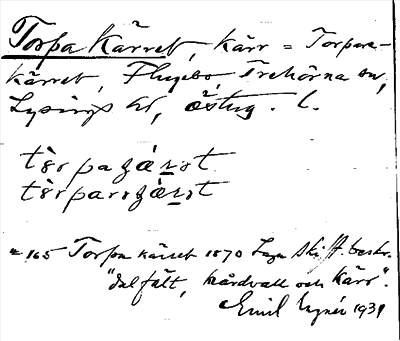 Torpa Kärret, kärr = Torpare-
kärret, Flugebo, Trehörna sn,
Lysings hd, Österg. l.
tòrpaʒárət
tòrparəʒárət
= 165 Torpa kärret 1870 Laga skift beskr.
"dal fält, hårdvall och Kärr".
Emil 1931